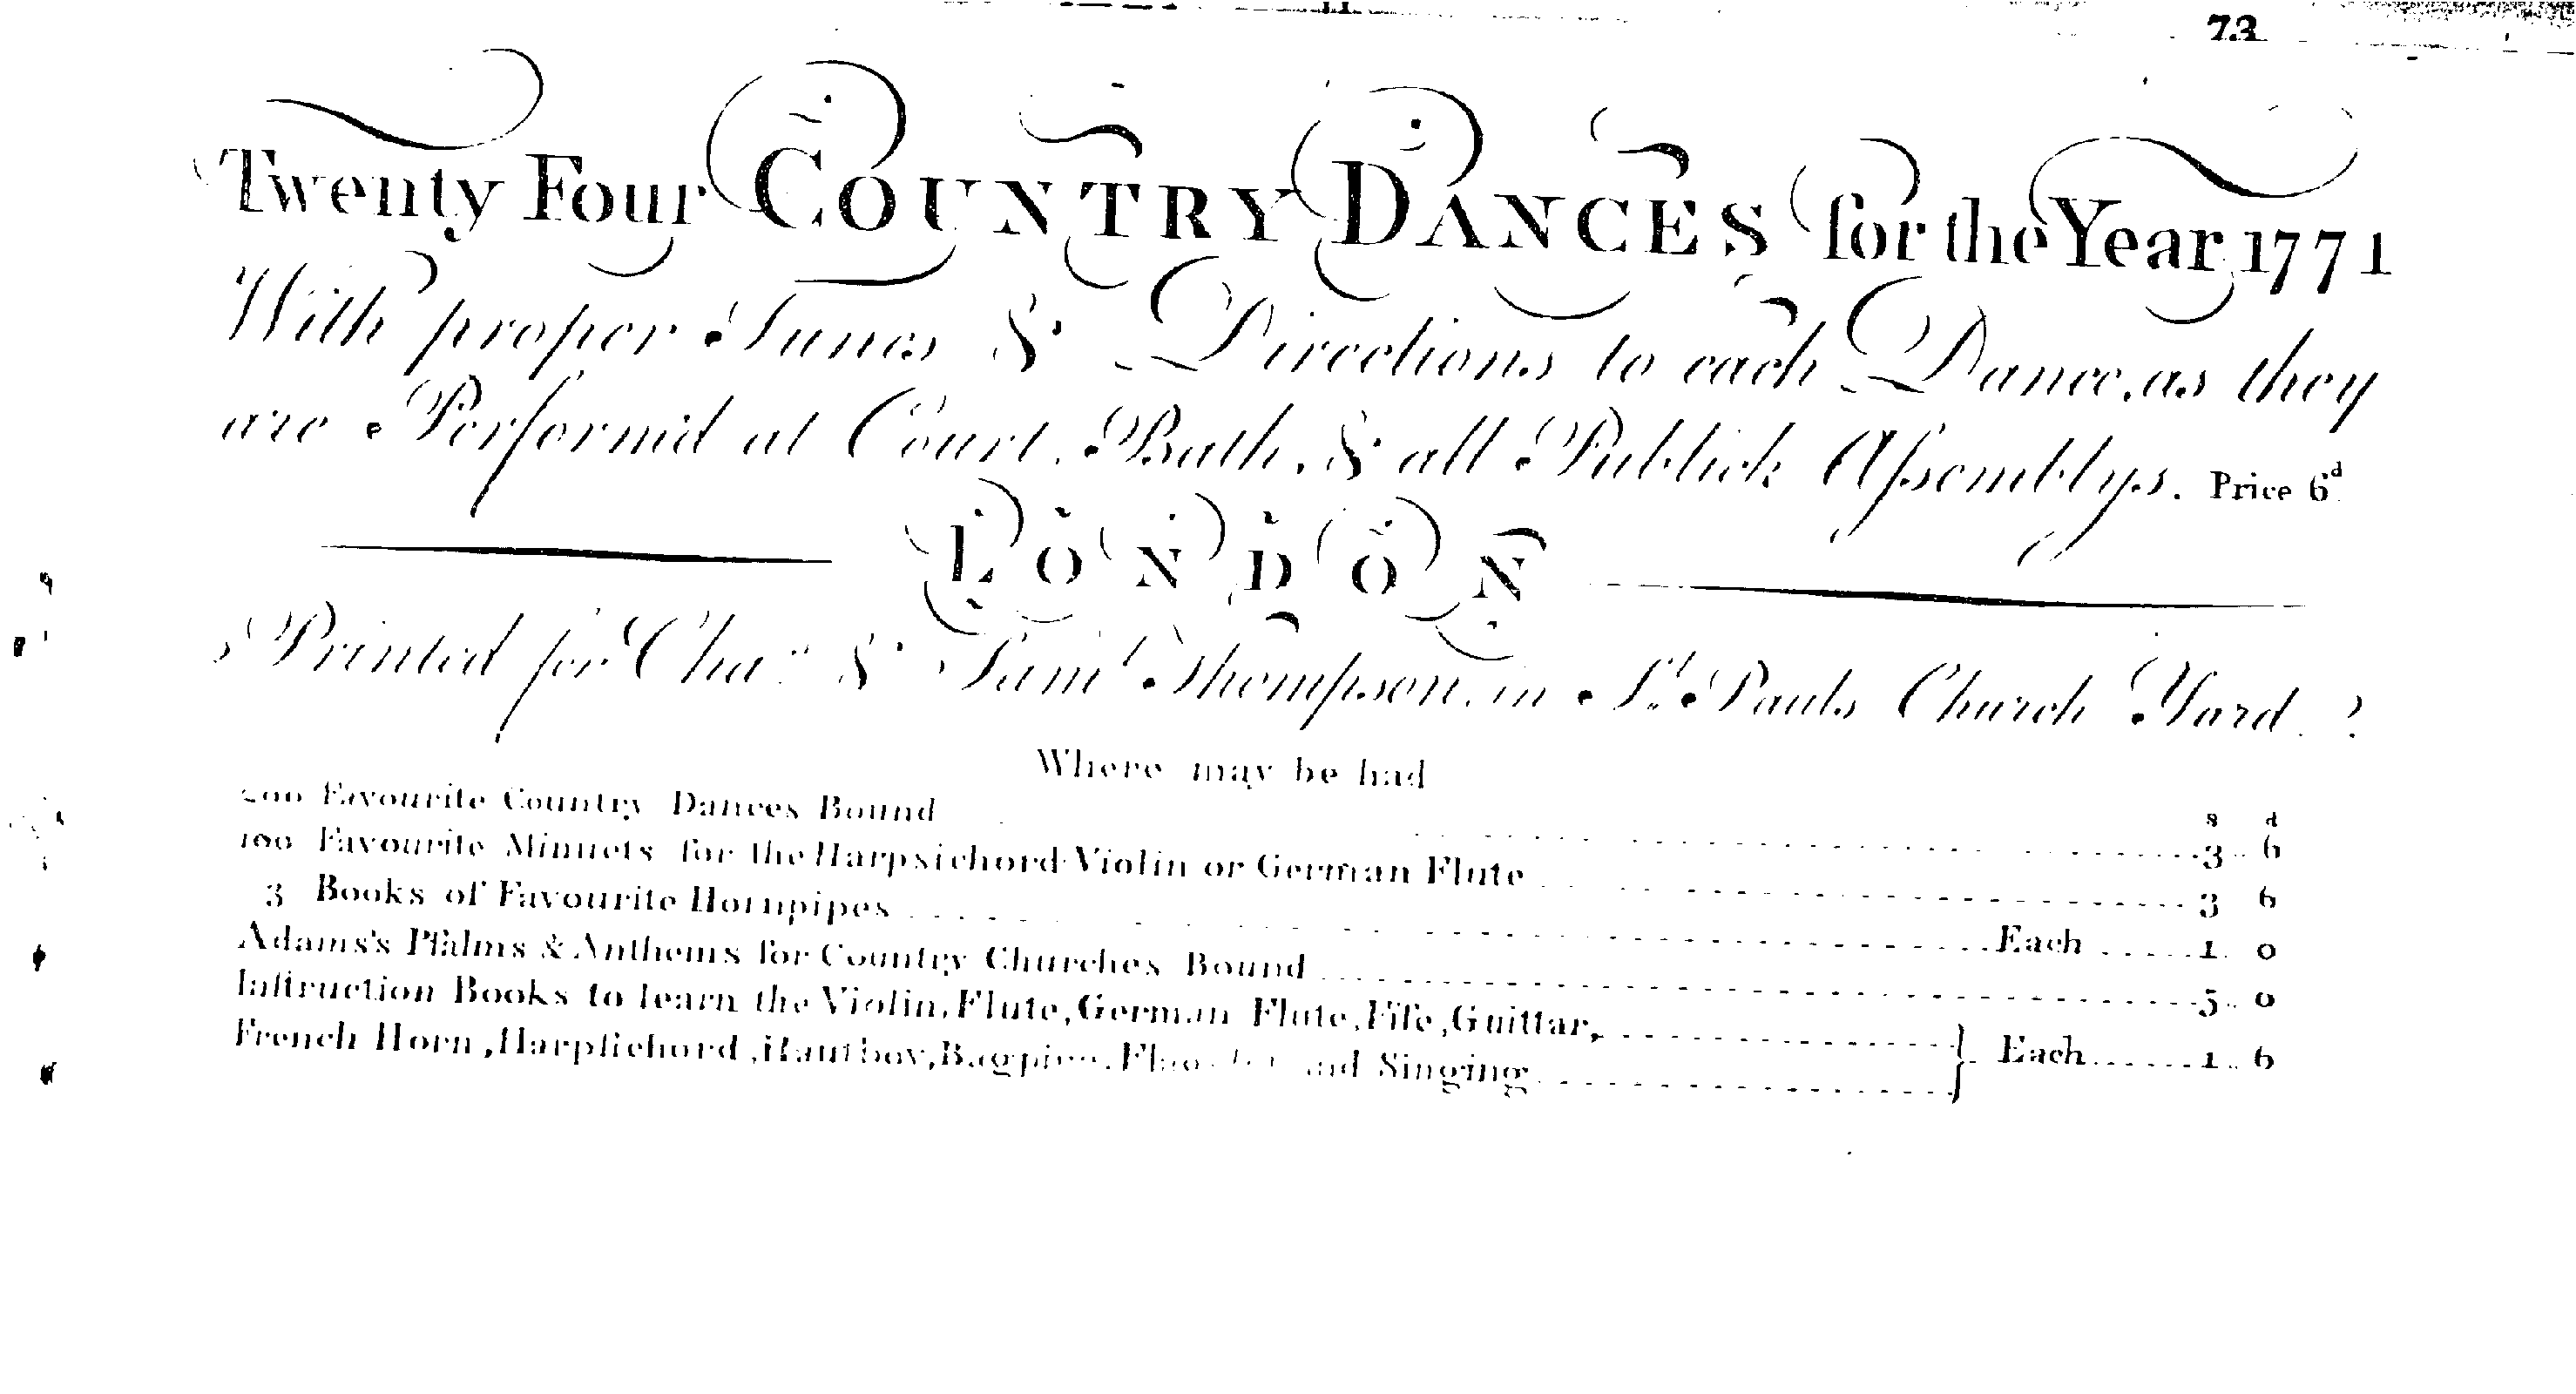 73
Twenty Four COUNTRY DANCES for the Year 1771
With proper Tunes & Directions to each Dance, as they
are Perform'd at Court, Bath, & all Publick Aſsemblys. Price 6d.
LONDON
Printed for Chas. & Saml. Thompson, in St. Pauls Church Yard.
Where may be had
s d
200 Favourite Country Dances Bound 3 .. 6
100 Favourite Minuets for the Harpsichord Violin or German Flute 3 6
3 Books of Favourite Hornpipes Each 1. 0
Adams's Pſalms & Anthems for Country Churches Bound 5 .. 0
Inſtruction Books to learn the Violin, Flute, German Flute, Fife, Guittar,
French Horn, Harpſichord, Hautboy, Bagpipe, and Singing } Each 1 .. 6